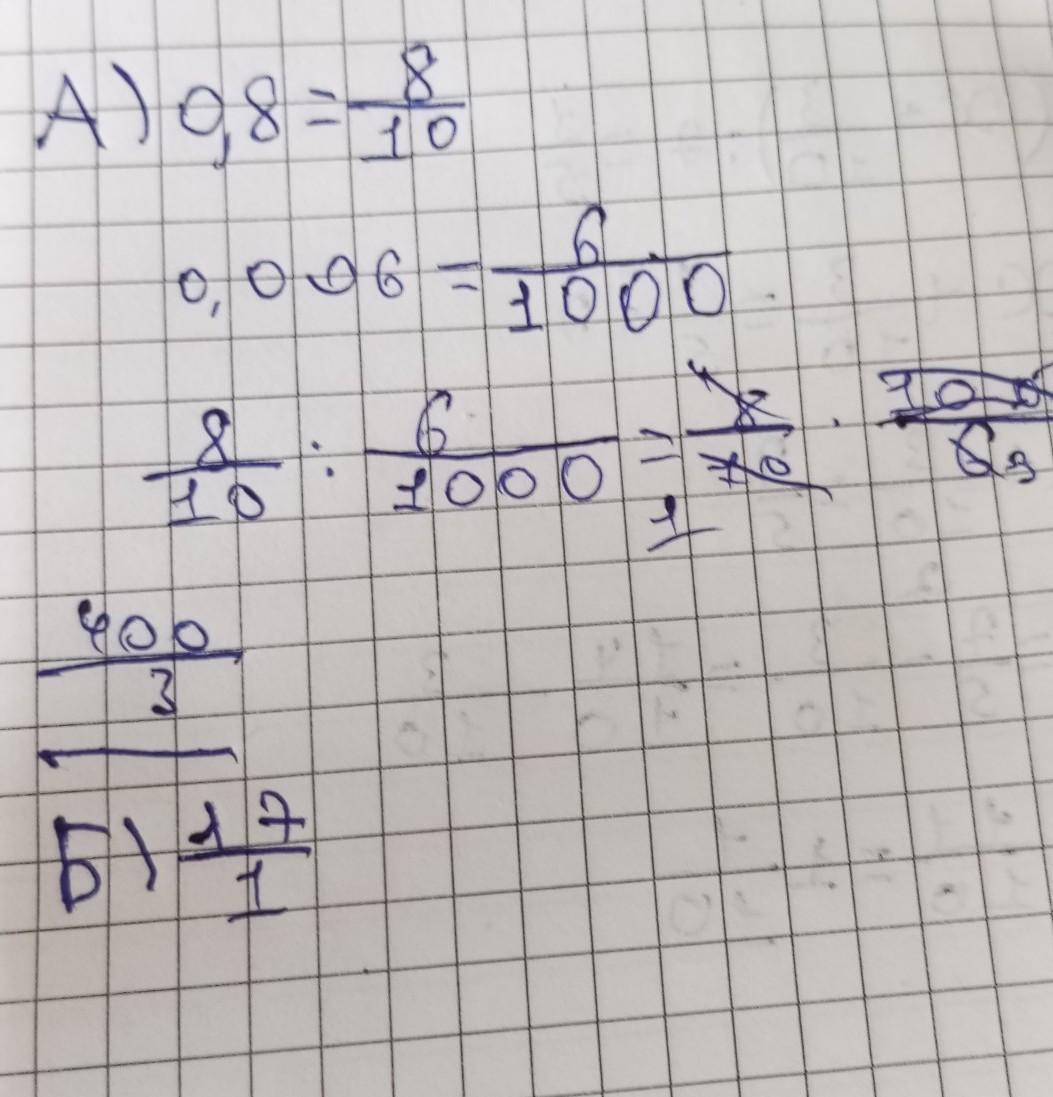 А) 0,8 = 8/10
0,006 = 6/1000
8/10 : 6/1000 = 8/10 · 100
4 1 6 3
400/3
Б) 17/1